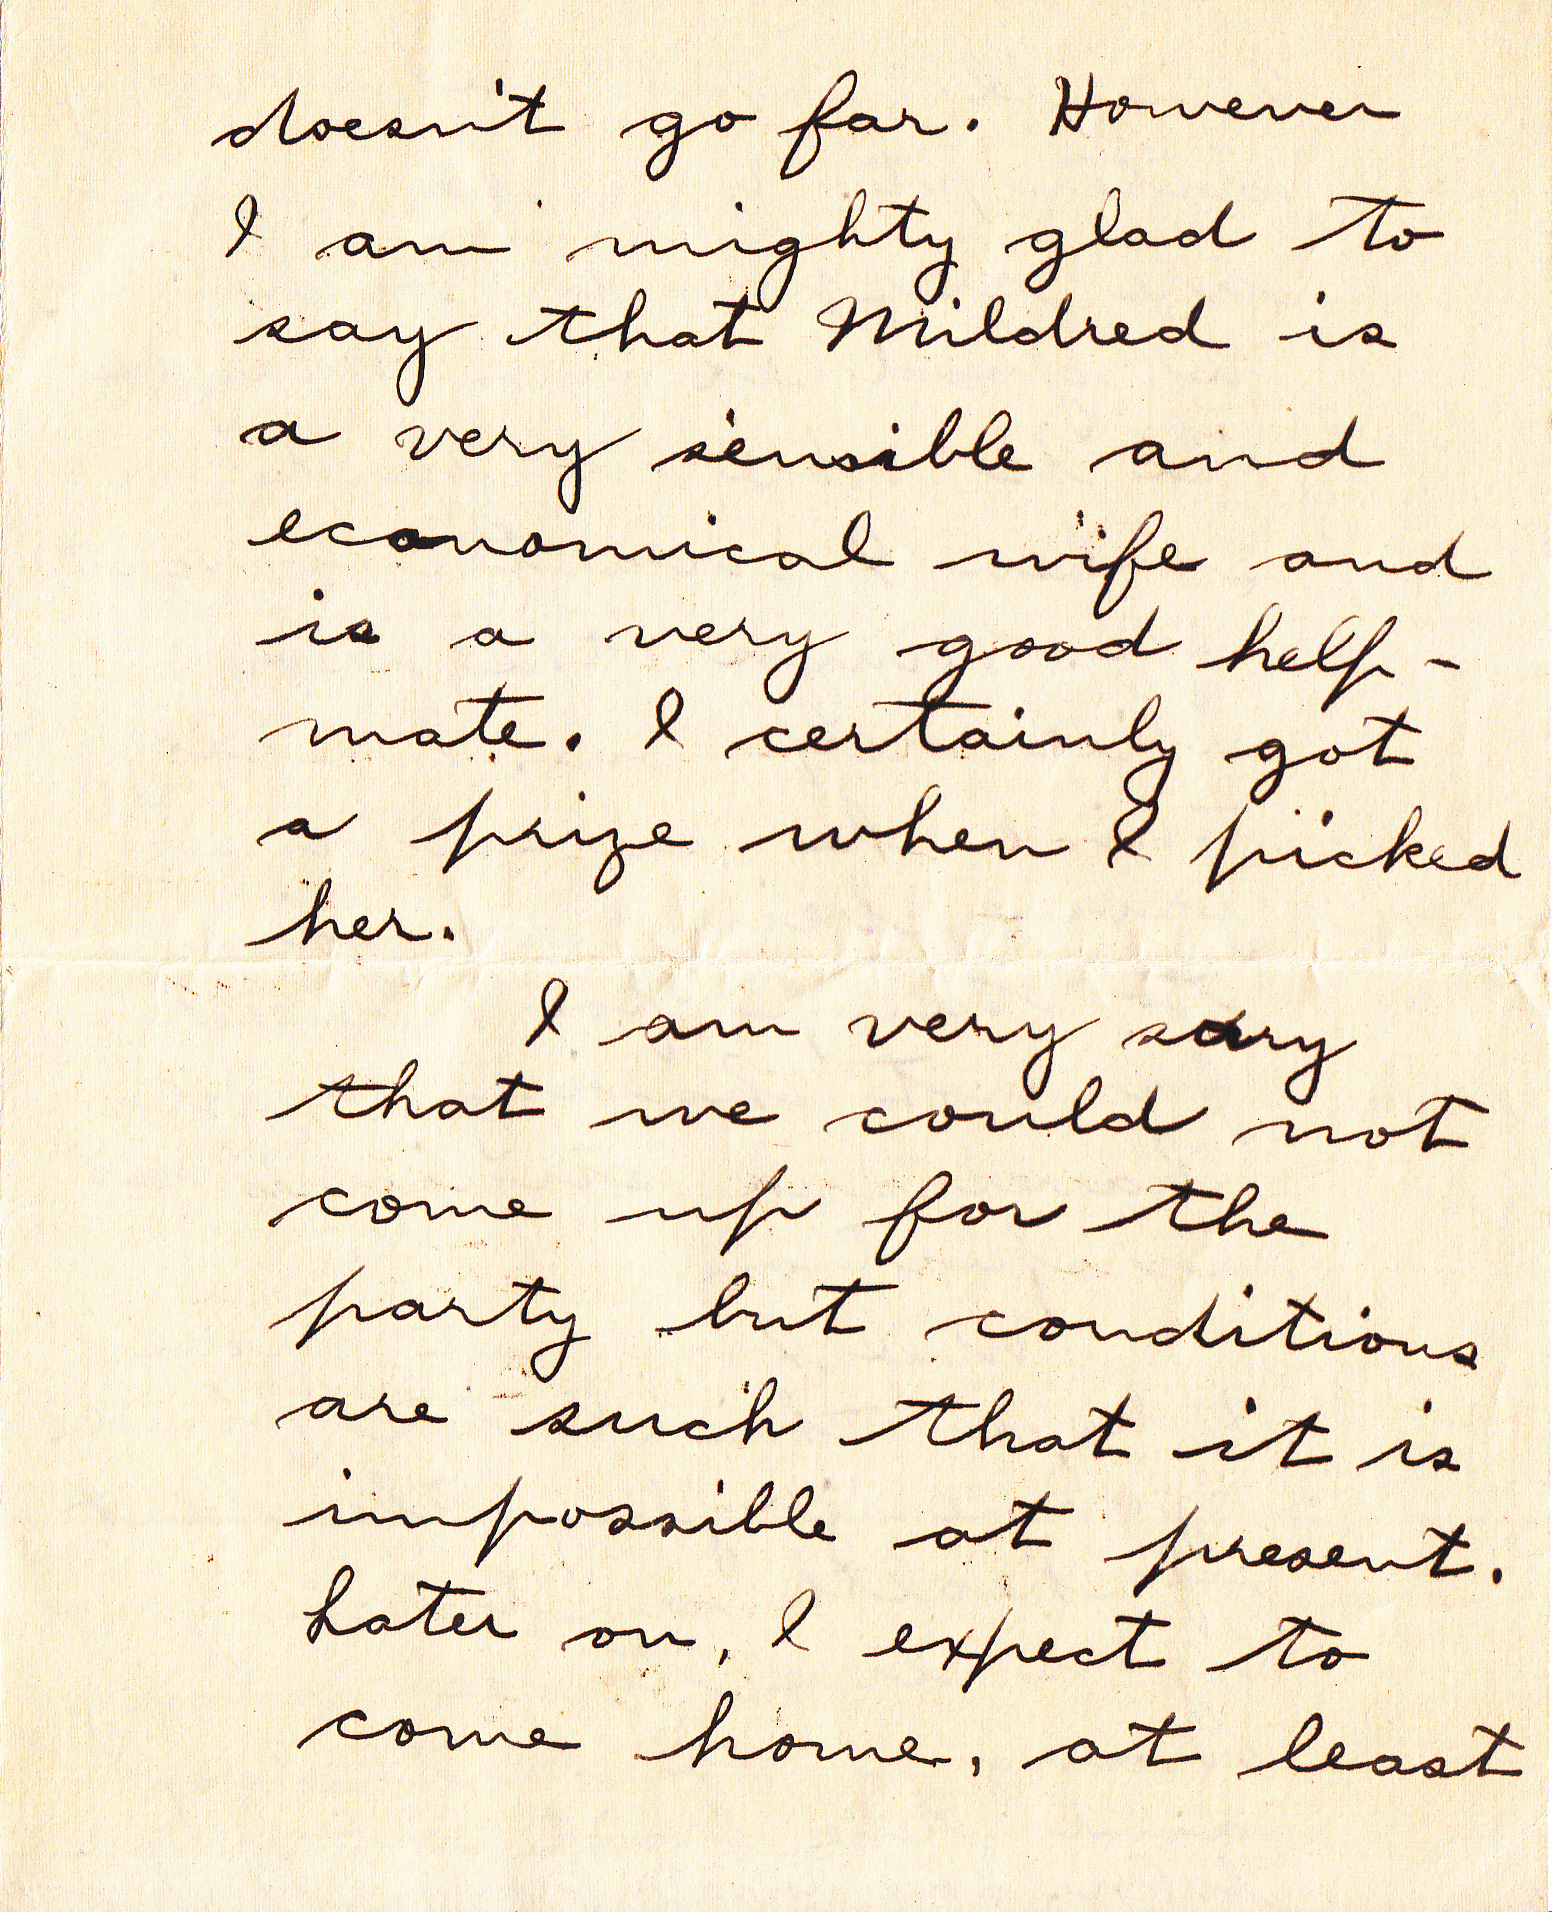 doesn't go far. However
I am mighty glad to
say that Mildred is
a very sensible and
economical wife and
is a very good help-
mate. I certainly got
a prize when I picked
her.
I am very sorry
that we could not
come up for the
party but conditions
are such that it is
impossible at present.
Later on, I expect to
come home, at least